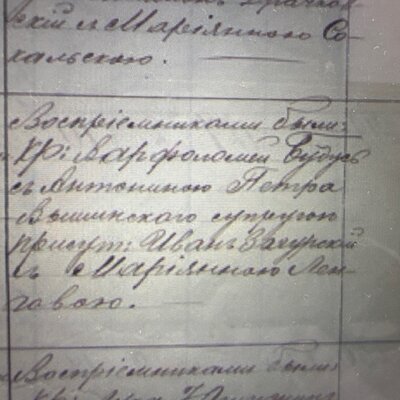 скій съ Маріянною Со-
кальскою.
Воспріемниками были:
кр: Варфоломей Будусь
съ Антониною Петра
Вышинскаго супругою
присут: Иванъ Загурскій
съ Маріянною Лон-
говою.
Воспріемниками были:
кр: